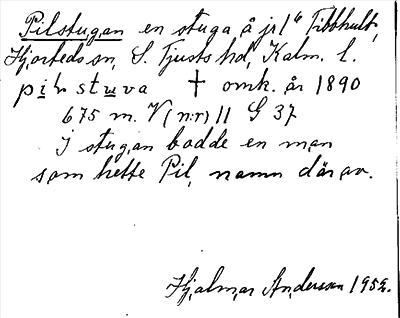 Pilstugan en stuga å jr 1⁶ Tibbhult,
Hjorteds sn, S. Tjusts hd, Kalm. l.
pil stuva † omk. år 1890
675 m. V (n:r) 11 G 37
I stugan bodde en man
som hette Pil, namn därav.
Hjalmar Andersson 1952.